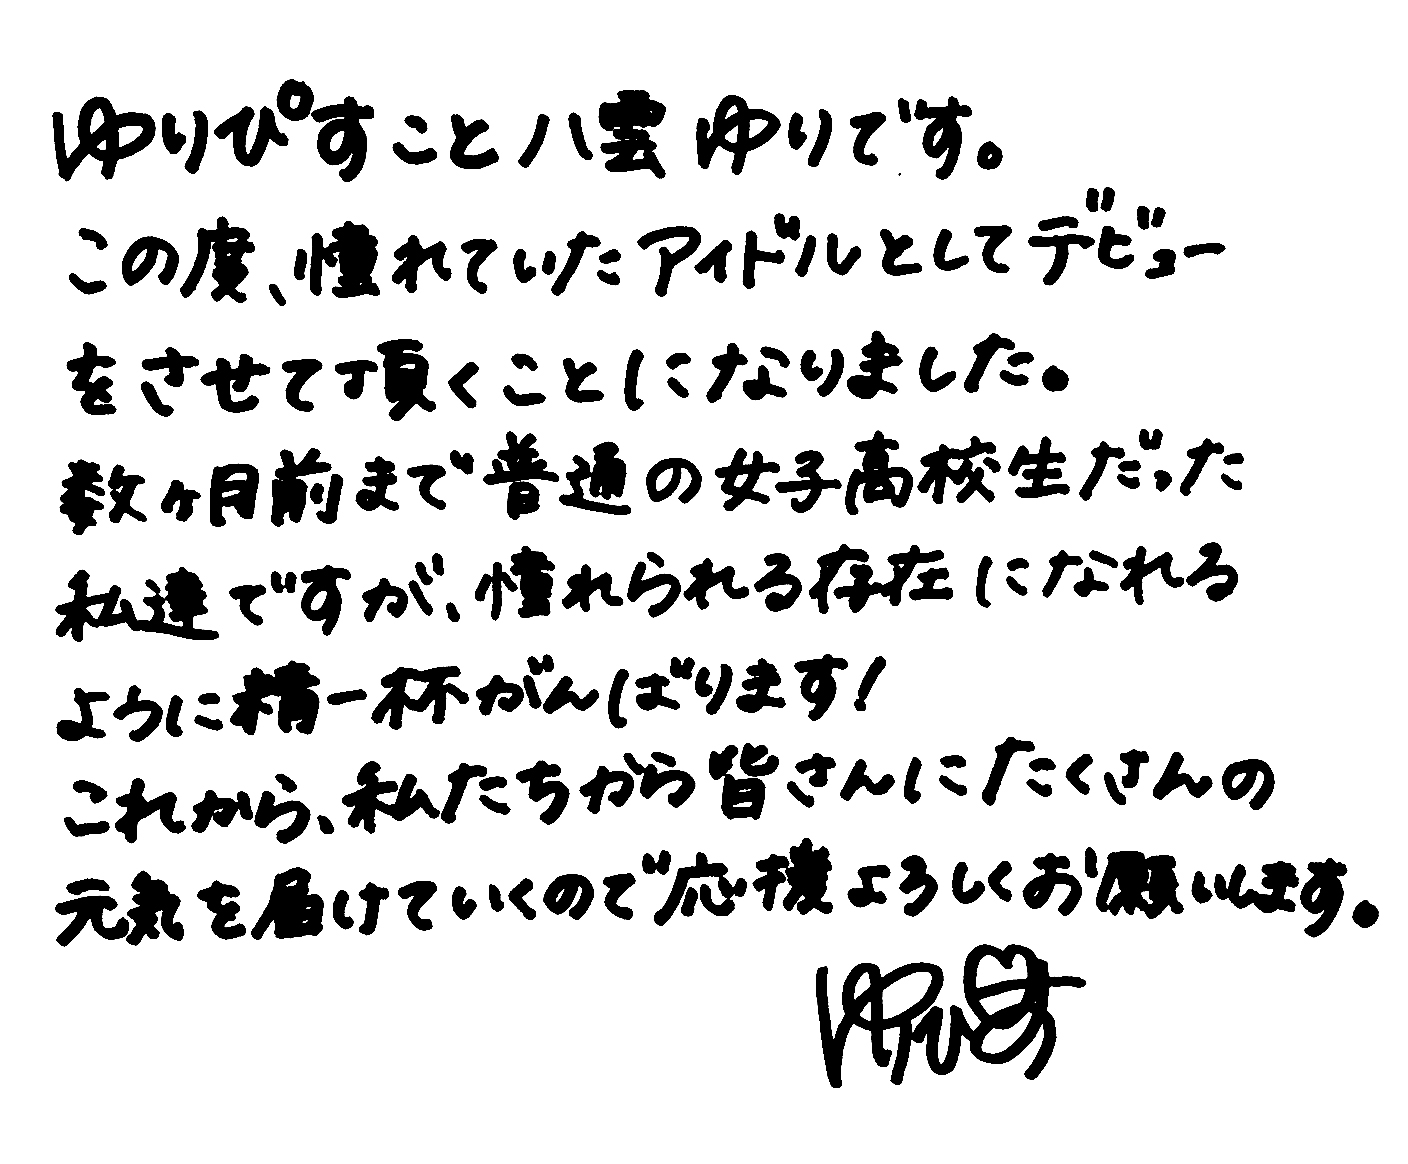 ゆりぴすこと八雲ゆりです。
この度、憧れていたアイドルとしてデビュー
をさせて頂くことになりました。
数ヶ月前まで普通の女子高校生だった
私達ですが、憧れられる存在になれる
ように精一杯がんばります!
これから、私たちから皆さんにたくさんの
元気を届けていくので応援よろしくお願いします。
ゆりぴす